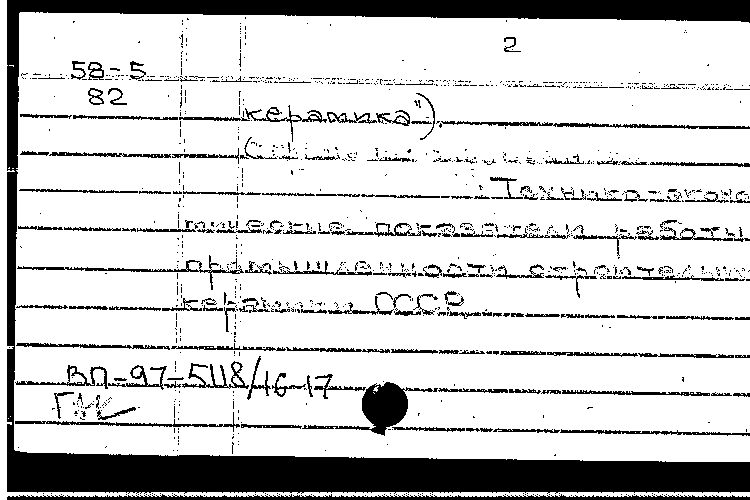 2
58-5
82
керамика").
Технико-эконо
мические показатели работы
промышленности строительн
керамики СССР.
ВП-97-5118/16-17